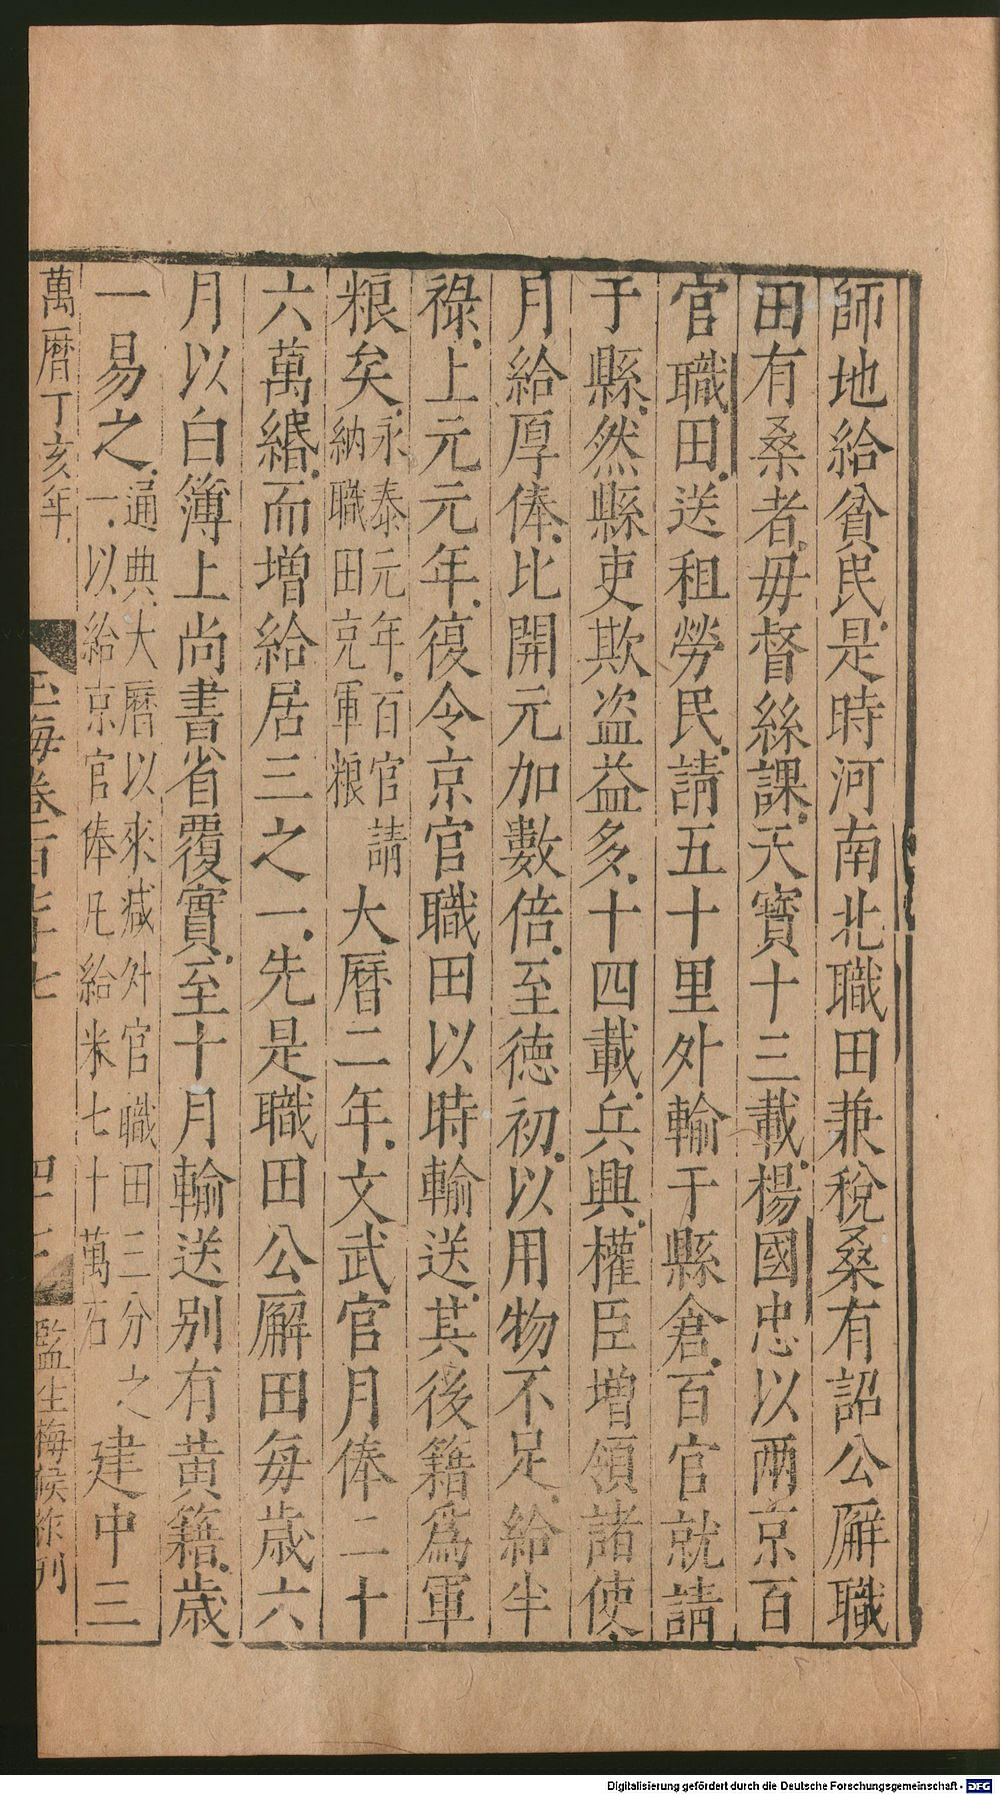 師地給貧民是時河南北職田兼稅桑有詔公廨職
田有桑者毋督絲課天寶十三載楊國忠以兩京百
官職田送租勞民請五十里外輸于縣倉百官就請
于縣然縣吏欺盗益多十四載兵興權臣增領諸使
月給厚俸比開元加數倍至德初以用物不足給半
祿上元元年復令京官職田以時輸送其後籍爲軍
粮矣永泰元年百官請
納職田充軍粮
大曆二年文武官月俸二十
六萬緡而增給居三之一先是職田公廨田每歲六
月以白簿上尚書省覆實至十月輸送别有黄籍歲
一易之通典大曆以來减外官職田三分之
一以給京官俸凡給米七十萬石
建中三
萬曆丁亥年
玉海卷百七十七
四十二
監生梅候祚刊
Digitalisierung gefördert durch die Deutsche Forschungsgemeinschaft - DFG